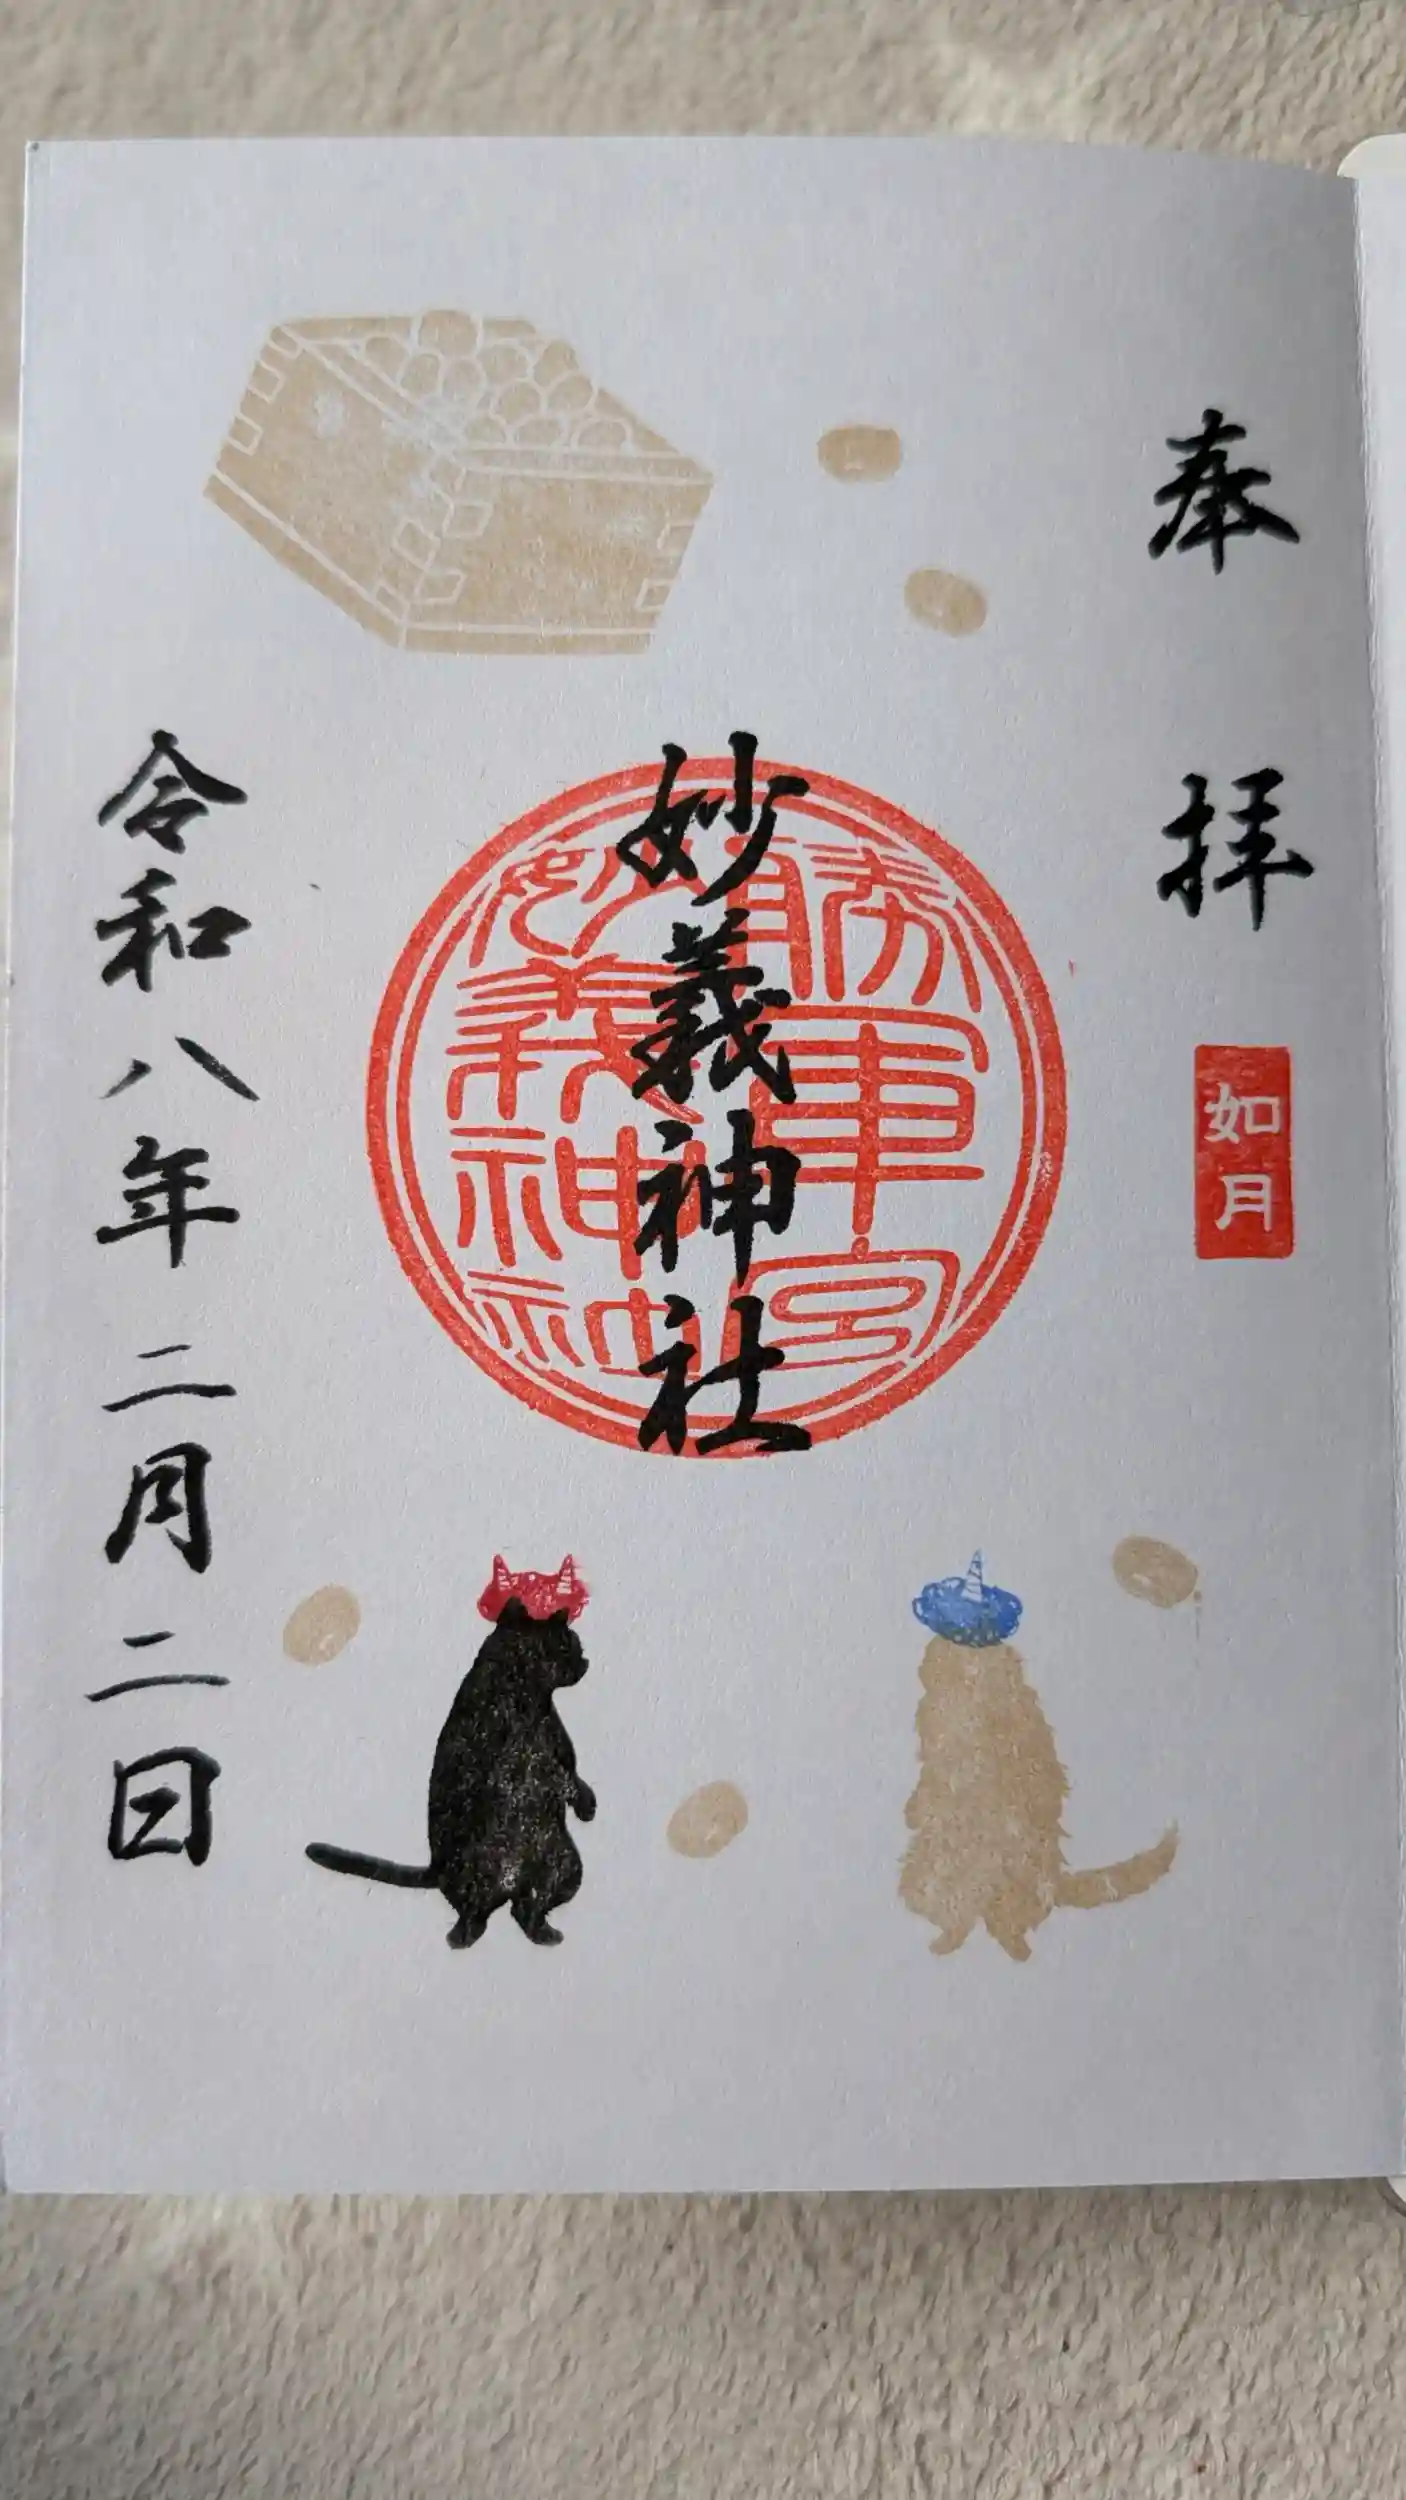 奉拝
如月
妙義神社
勝軍宮
妙義神社
令和八年二月二日